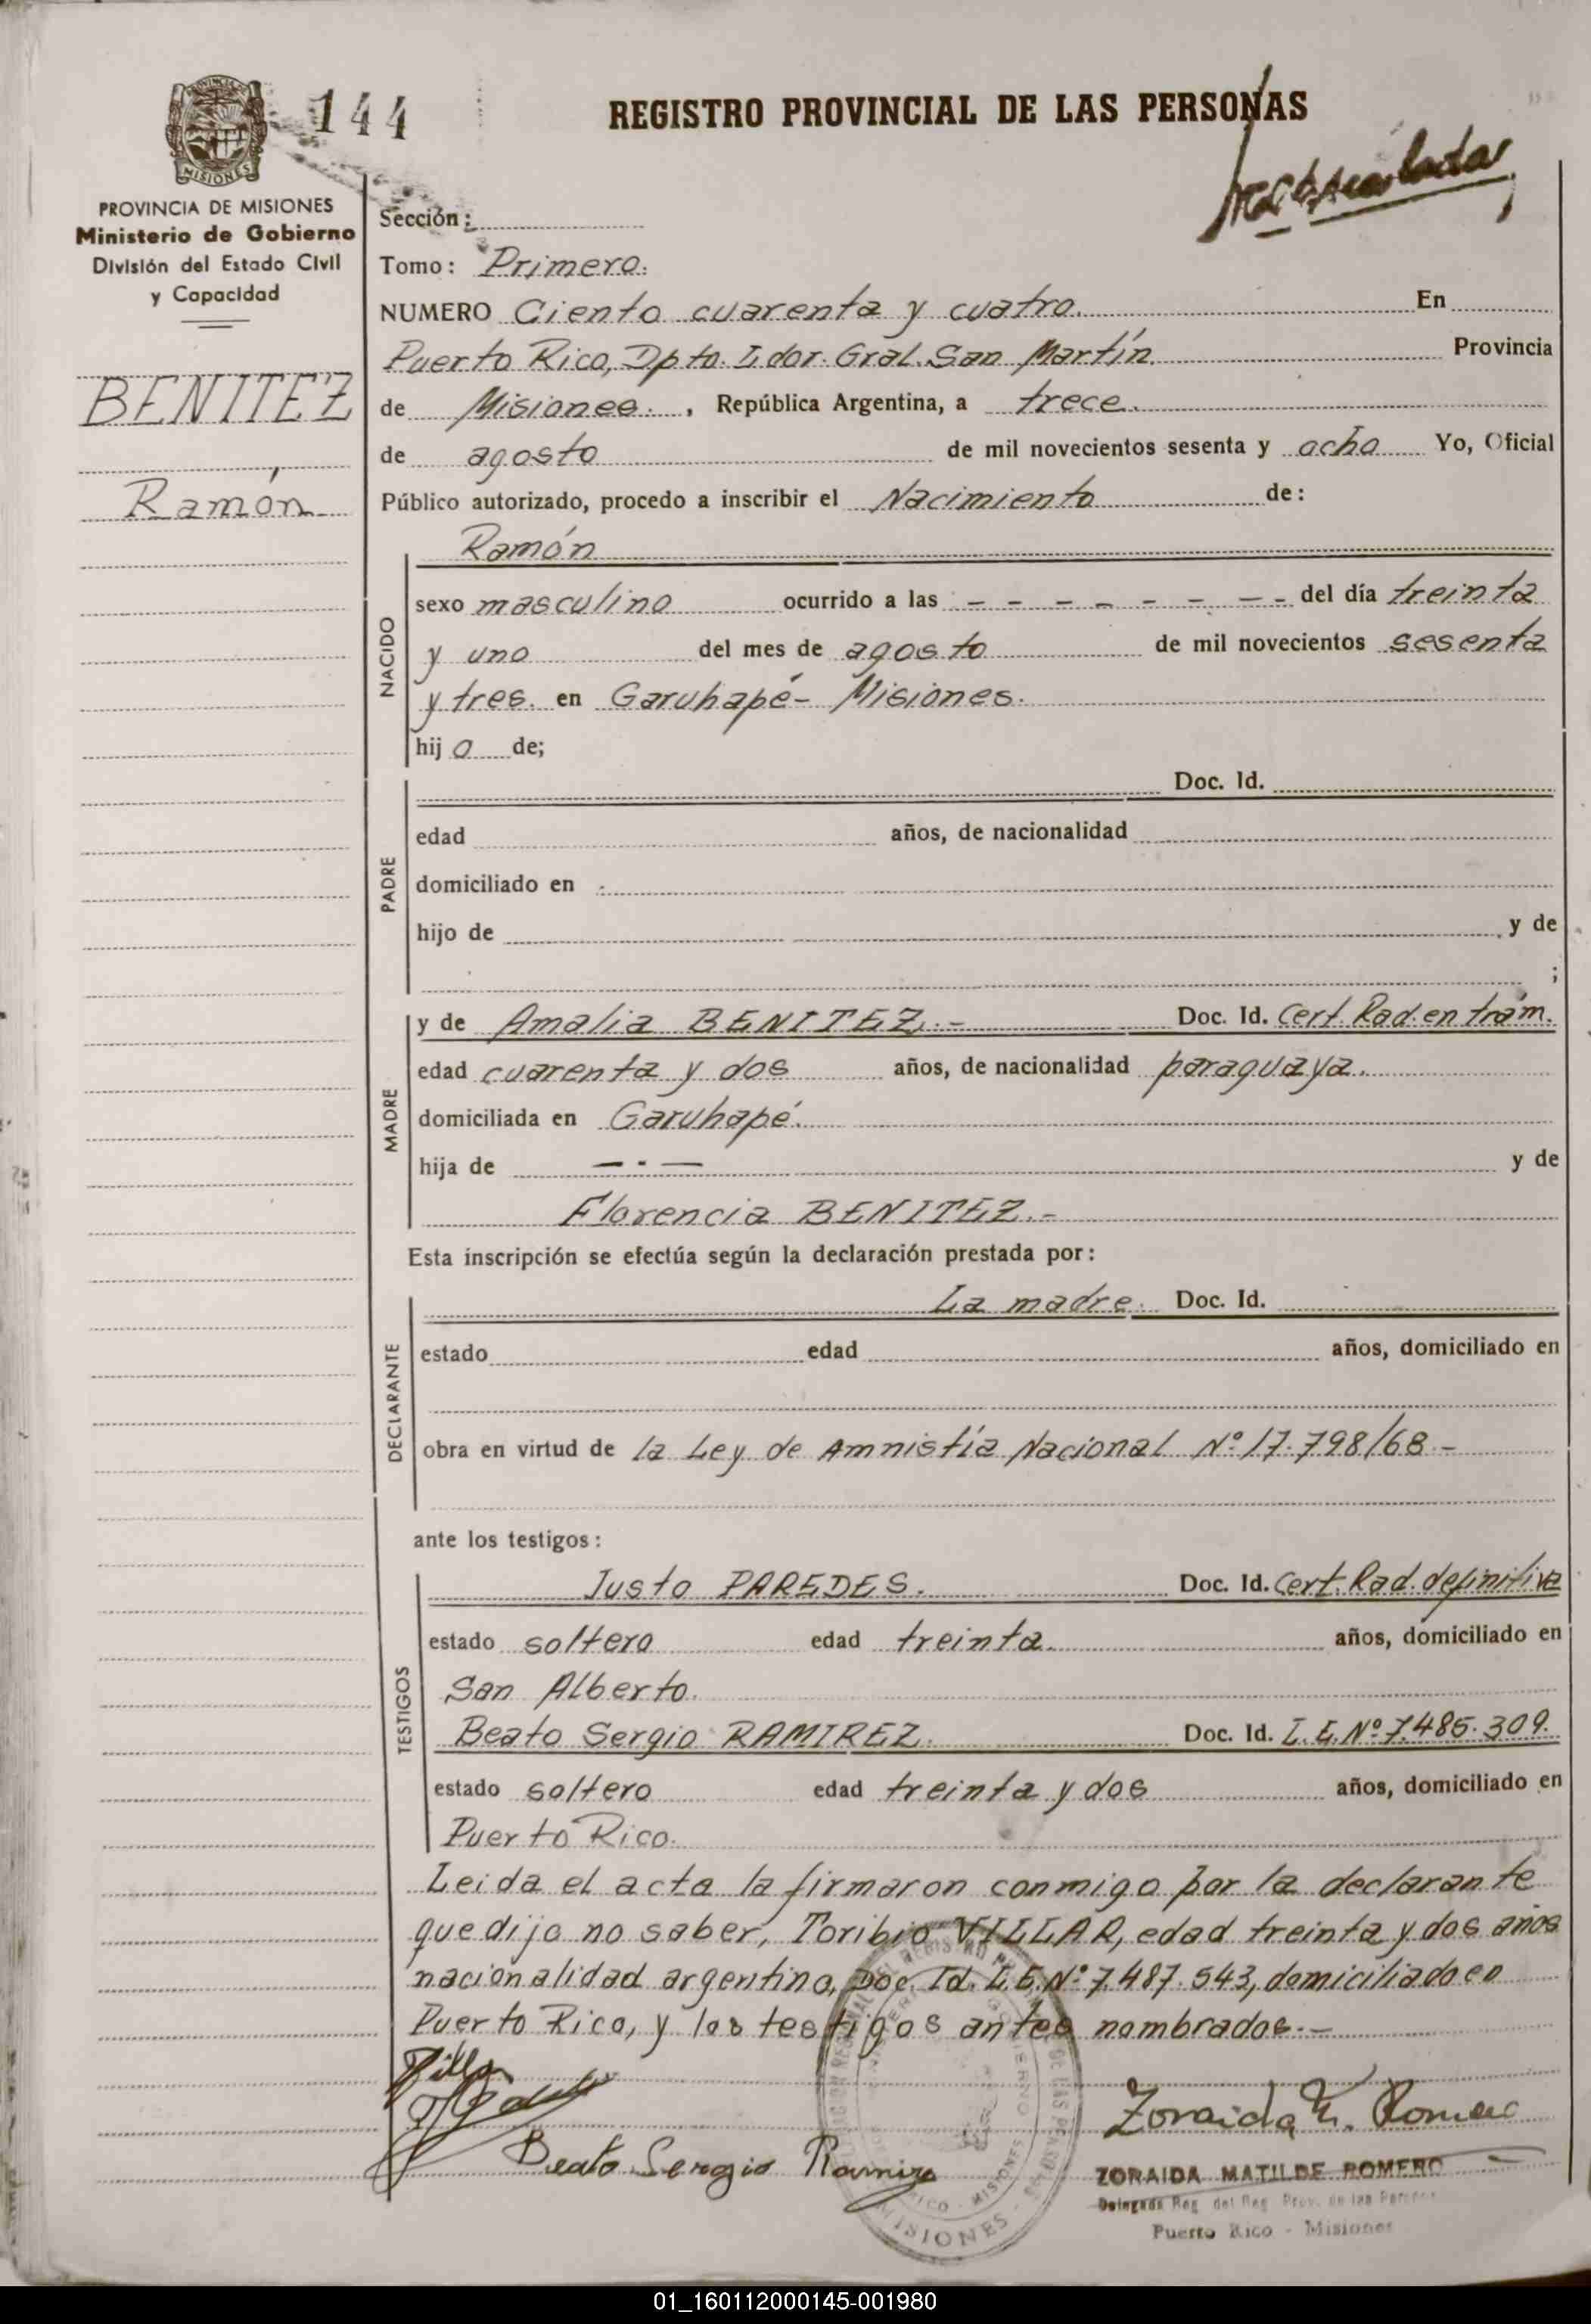 144
REGISTRO PROVINCIAL DE LAS PERSONAS
MISIONES
PROVINCIA DE MISIONES
Ministerio de Gobierno
División del Estado Civil
y Capacidad
BENITEZ
Ramón
Sección:
Tomo: Primero.
NUMERO Ciento cuarenta y cuatro. En
Puerto Rico, Dpto. Ldor. Gral. San Martín. Provincia
de Misiones. , República Argentina, a trece.
de agosto de mil novecientos sesenta y ocho Yo, Oficial
Público autorizado, procedo a inscribir el Nacimiento de:
Ramón
NACIDO
sexo masculino ocurrido a las - - - - - - - - del día treinta
y uno del mes de agosto de mil novecientos sesenta
y tres. en Garuhapé- Misiones.
hij o de;
PADRE
Doc. Id.
edad años, de nacionalidad
domiciliado en
hijo de y de
;
MADRE
y de Amalia BENITEZ.- Doc. Id. Cert. Rad. en trám.
edad cuarenta y dos años, de nacionalidad paraguaya.
domiciliada en Garuhapé.
hija de -.- y de
Florencia BENITEZ.-
Esta inscripción se efectúa según la declaración prestada por:
DECLARANTE
La madre. Doc. Id.
estado edad años, domiciliado en
obra en virtud de la Ley de Amnistía Nacional Nº 17.798/68.-
ante los testigos:
TESTIGOS
Justo PAREDES. Doc. Id. Cert. Rad. definitiva
estado soltero edad treinta. años, domiciliado en
San Alberto.
Beato Sergio RAMIREZ. Doc. Id. L.E. Nº 7.485.309.
estado soltero edad treinta y dos años, domiciliado en
Puerto Rico.
Leida el acta la firmaron conmigo por la declarante
que dijo no saber, Toribio VILLAR, edad treinta y dos años
nacionalidad argentina, Doc. Id. L.E. Nº 7.487.543, domiciliado en
Puerto Rico, y los testigos antes nombrados.-
Beato Sergio Ramirez
Zoraida M. Romero
ZORAIDA MATILDE ROMERO
Delegada Reg. del Reg. Prov. de las Personas
Puerto Rico - Misiones
MISIONES
01_160112000145-001980